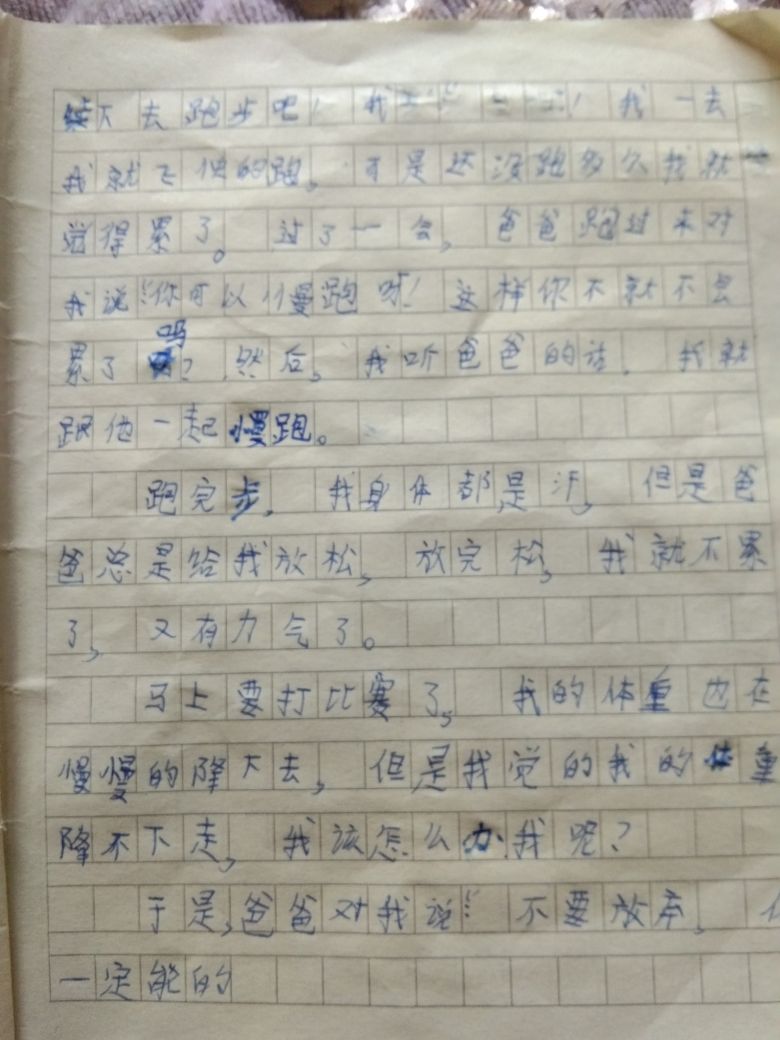 下去跑步吧！我 ！我一去
我就飞快的跑，可是还没跑多久我就
觉得累了。过了一会，爸爸跑过来对
我说：“你可以慢跑呀！这样你不就不会
累了吗？然后，我听爸爸的话，我就
跟他一起慢跑。
跑完步，我身体都是汗，但是爸
爸总是给我放松，放完松，我就不累
了，又有力气了。
马上要打比赛了，我的体重也在
慢慢的降下去，但是我觉的我的体重
降不下走，我该怎么办我呢？
于是，爸爸对我说：“不要放弃，
一定能的